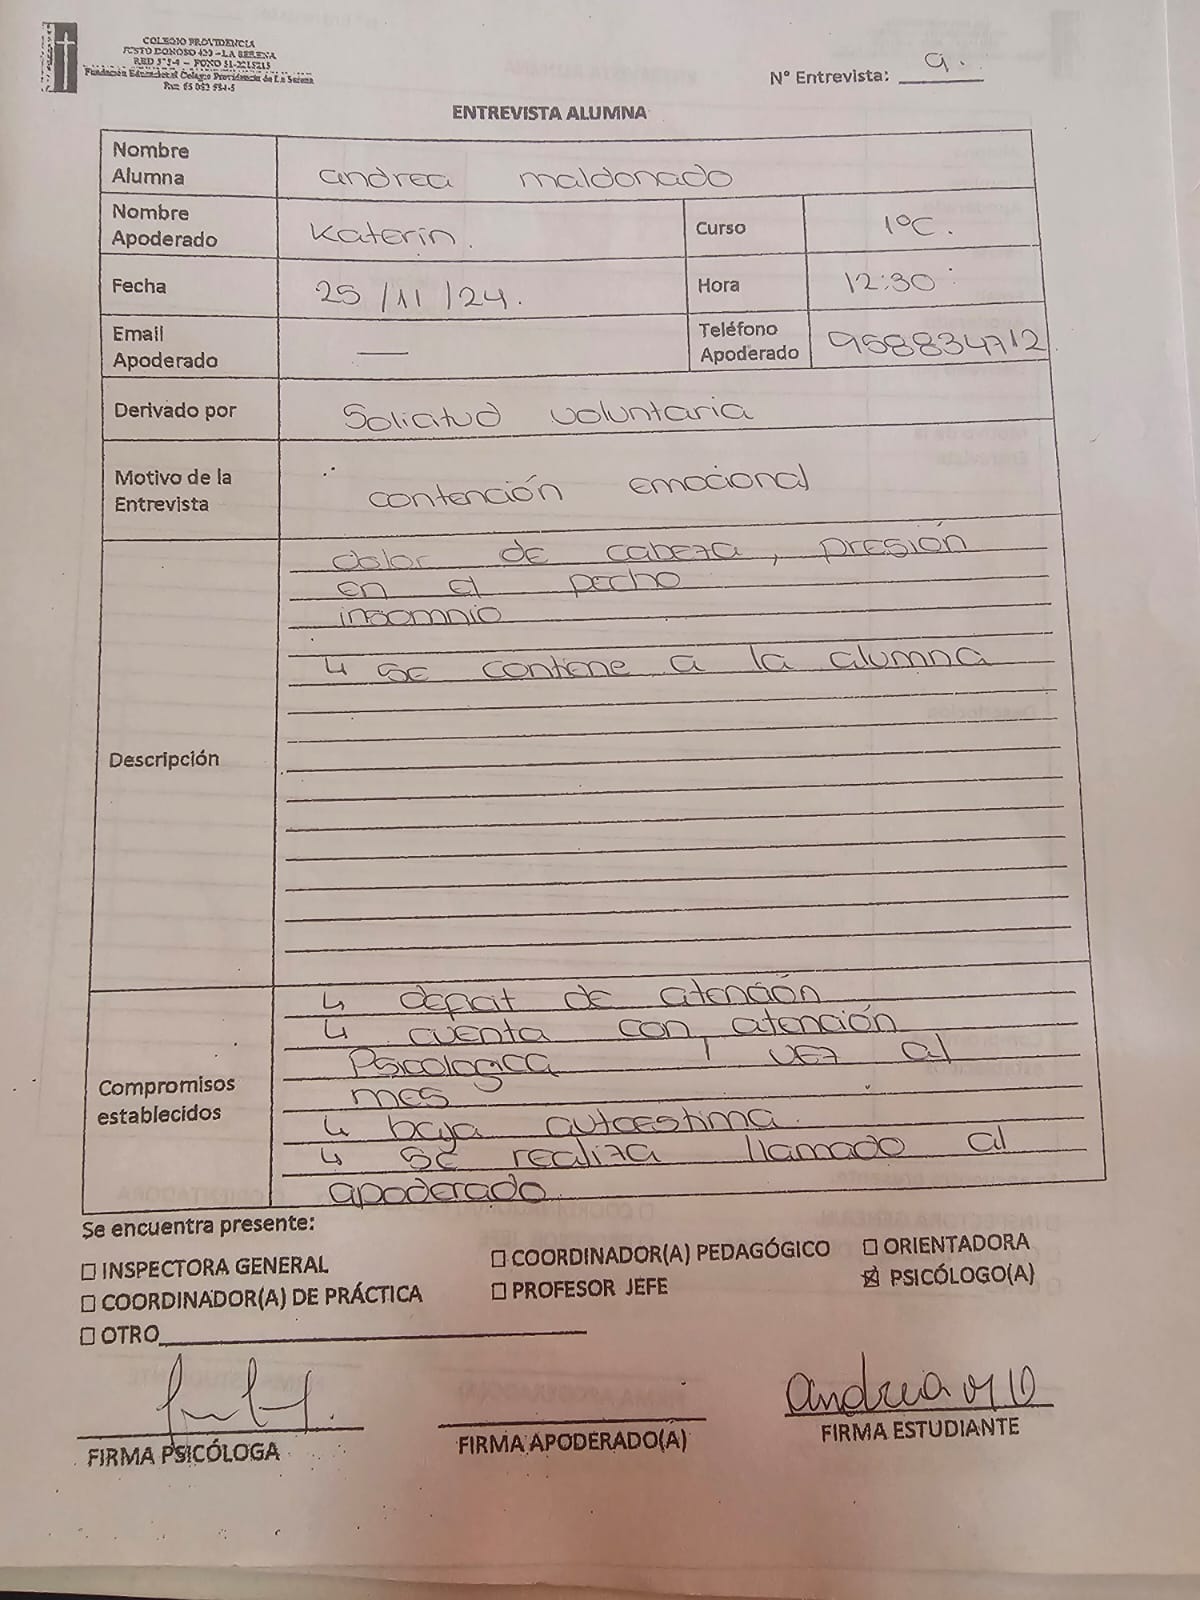 COLEGIO PROVIDENCIA
JUSTO DONOSO 420 - LA SERENA
RBD 573-4 - FONO 51-2215215
Fundación Educacional Colegio Providencia de La Serena
Nº Entrevista: 9.
ENTREVISTA ALUMNA
Nombre
Alumna
andrea maldonado
Nombre
Apoderado
Katerin.
Curso
1ºC.
Fecha
25/11/24.
Hora
12:30
Email
Apoderado
—
Teléfono
Apoderado
958834712
Derivado por
Soliatud voluntaria
Motivo de la
Entrevista
contención emocional
Descripción
dolor de cabeza, presión
en el pecho
insomnio
↳ se contiene a la alumna
Compromisos
establecidos
↳ deficit de atención
↳ cuenta con atención
Psicologica 1 vez al
mes
↳ baja autoestima.
↳ se realiza llamado al
apoderado
Se encuentra presente:
☐ INSPECTORA GENERAL
☐ COORDINADOR(A) PEDAGÓGICO
☐ ORIENTADORA
☐ COORDINADOR(A) DE PRÁCTICA
☐ PROFESOR JEFE
☒ PSICÓLOGO(A)
☐ OTRO
FIRMA PSICÓLOGA
FIRMA APODERADO(A)
andrea
FIRMA ESTUDIANTE